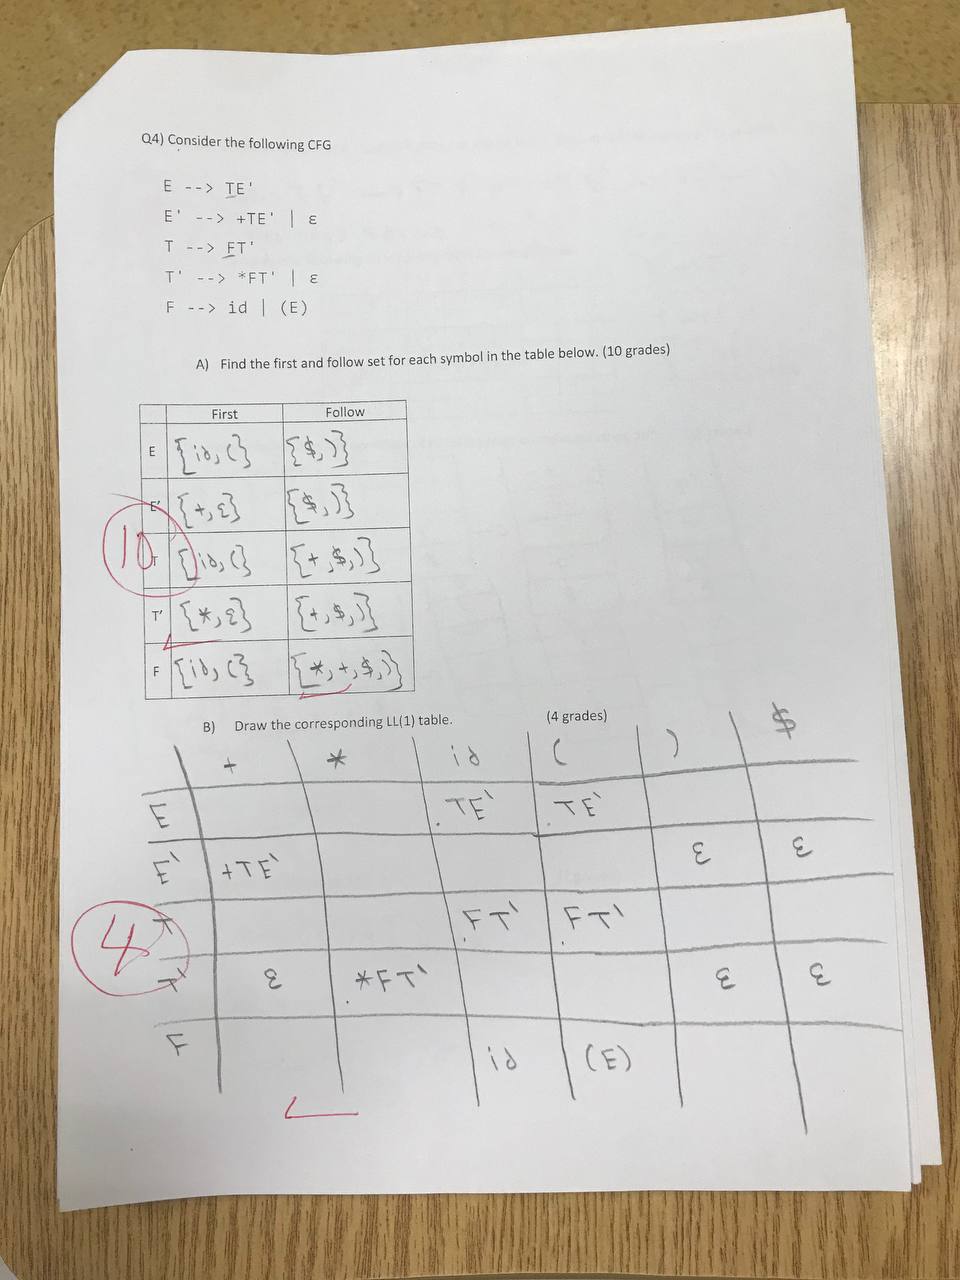 Q4) Consider the following CFG
E --> TE'
E' --> +TE' | ε
T --> FT'
T' --> *FT' | ε
F --> id | (E)
A) Find the first and follow set for each symbol in the table below. (10 grades)
First Follow
E {id, (} {$, )}
E' {+, ε} {$, )}
T {id, (} {+, $, )}
T' {*, ε} {+, $, )}
F {id, (} {*, +, $, )}
10
B) Draw the corresponding LL(1) table. (4 grades)
+ * id ( ) $
E TE' TE'
E' +TE' ε ε
T FT' FT'
4
T' ε *FT' ε ε
F id (E)